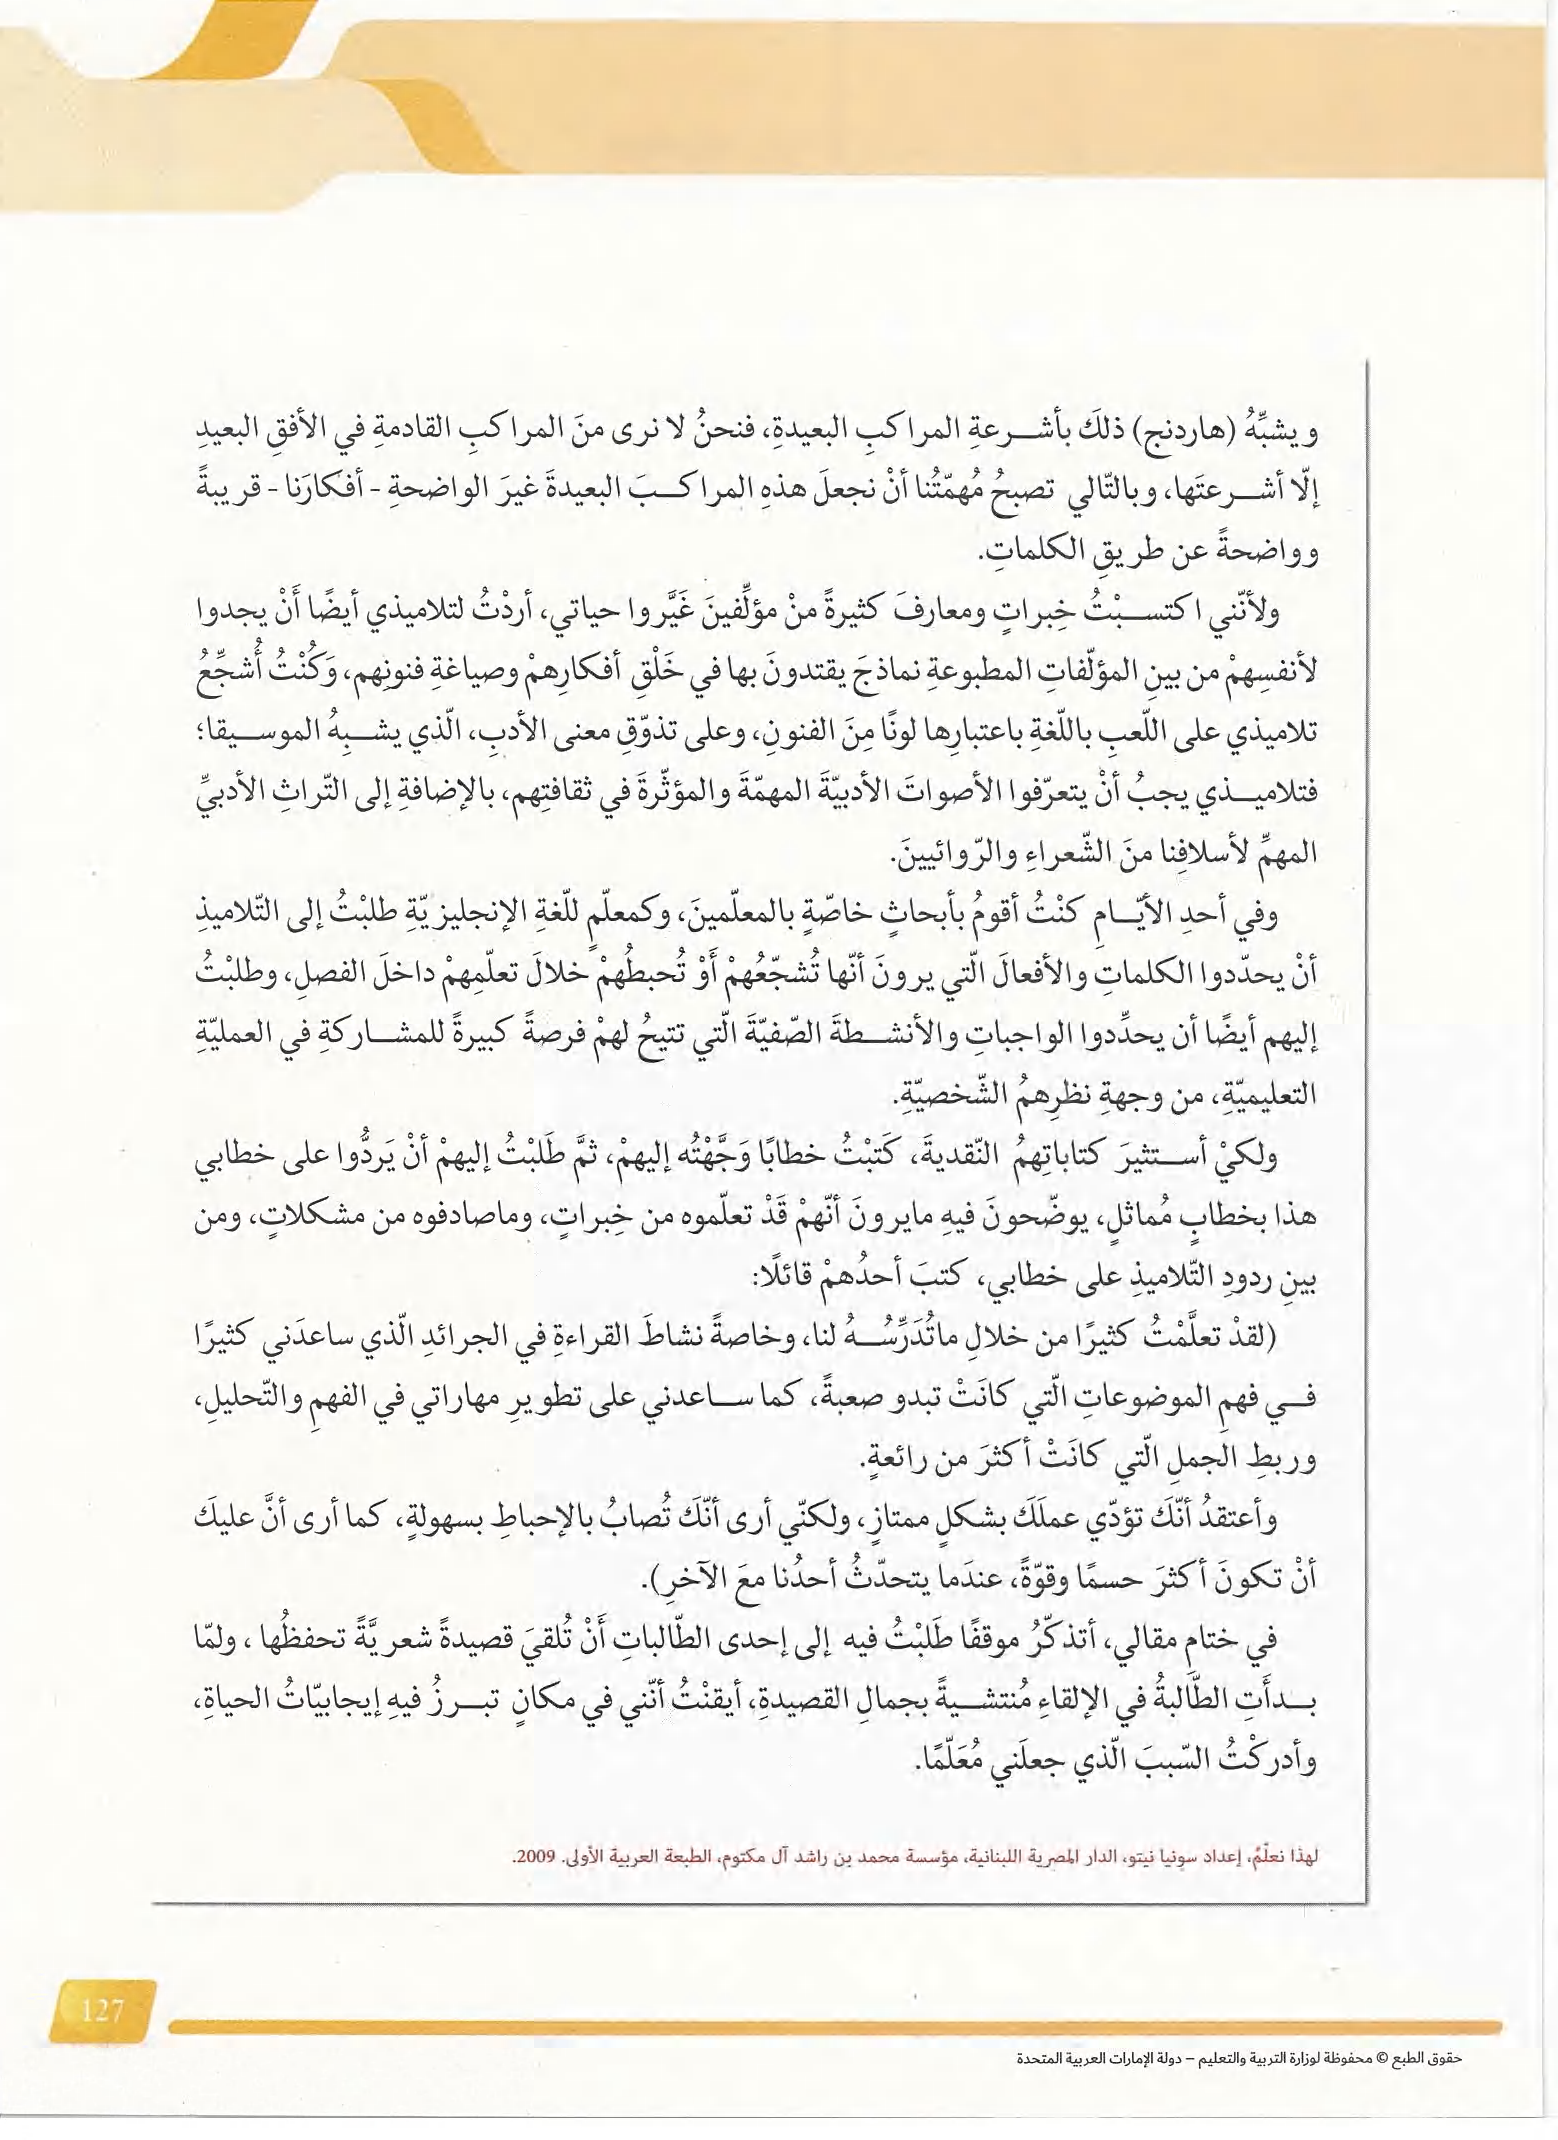 ويشبِّهُ (هاردنج) ذلكَ بأشرعةِ المراكبِ البعيدةِ، فنحنُ لا نرى منَ المراكبِ القادمةِ في الأفقِ البعيدِ
إلّا أشرعتَها، وبالتّالي تصبحُ مُهمّتُنا أنْ نجعلَ هذهِ المراكبَ البعيدةَ غيرَ الواضحةِ - أفكارَنا - قريبةً
وواضحةً عن طريقِ الكلماتِ.
ولأنّني اكتسبْتُ خِبراتٍ ومعارفَ كثيرةً منْ مؤلِّفينَ غَيَّروا حياتي، أردْتُ لتلاميذي أيضًا أَنْ يجدوا
لأنفسِهمْ من بينِ المؤلّفاتِ المطبوعةِ نماذجَ يقتدونَ بها في خَلْقِ أفكارِهمْ وصياغةِ فنونِهم، وَكُنْتُ أُشجِّعُ
تلاميذي على اللّعبِ باللّغةِ باعتبارِها لونًا مِنَ الفنونِ، وعلى تذوّقِ معنى الأدبِ، الّذي يشبِهُ الموسيقا؛
فتلاميذي يجبُ أنْ يتعرّفوا الأصواتَ الأدبيّةَ المهمّةَ والمؤثّرةَ في ثقافتِهم، بالإضافةِ إلى التّراثِ الأدبيِّ
المهمِّ لأسلافِنا منَ الشّعراءِ والرّوائيينَ.
وفي أحدِ الأيّامِ كنْتُ أقومُ بأبحاثٍ خاصّةٍ بالمعلّمينَ، وكمعلّمٍ للّغةِ الإنجليزيّةِ طلبْتُ إلى التّلاميذِ
أنْ يحدّدوا الكلماتِ والأفعالَ الّتي يرونَ أنّها تُشجّعُهمْ أَوْ تُحبطُهمْ خلالَ تعلّمِهمْ داخلَ الفصلِ، وطلبْتُ
إليهم أيضًا أن يحدِّدوا الواجباتِ والأنشطةَ الصّفيّةَ الّتي تتيحُ لهمْ فرصةً كبيرةً للمشاركةِ في العمليّةِ
التعليميّةِ، من وجهةِ نظرِهمُ الشّخصيّةِ.
ولكيْ أستثيرَ كتاباتِهمُ النّقديةَ، كَتبْتُ خطابًا وَجَّهْتُه إليهمْ، ثمَّ طَلبْتُ إليهمْ أنْ يَردُّوا على خطابي
هذا بخطابٍ مُماثلٍ، يوضّحونَ فيهِ مايرونَ أنّهمْ قَدْ تعلّموه من خِبراتٍ، وماصادفوه من مشكلاتٍ، ومن
بينِ ردودِ التّلاميذِ على خطابي، كتبَ أحدُهمْ قائلًا:
(لقدْ تعلَّمْتُ كثيرًا من خلالِ ماتُدَرِّسُهُ لنا، وخاصةً نشاطَ القراءةِ في الجرائدِ الّذي ساعدَني كثيرًا
في فهمِ الموضوعاتِ الّتي كانَتْ تبدو صعبةً، كما ساعدني على تطويرِ مهاراتي في الفهمِ والتّحليلِ،
وربطِ الجملِ الّتي كانَتْ أكثرَ من رائعةٍ.
وأعتقدُ أنّكَ تؤدّي عملَكَ بشكلٍ ممتازٍ، ولكنّي أرى أنّكَ تُصابُ بالإحباطِ بسهولةٍ، كما أرى أنَّ عليكَ
أنْ تكونَ أكثرَ حسمًا وقوّةً، عندَما يتحدّثُ أحدُنا معَ الآخرِ).
في ختامِ مقالي، أتذكّرُ موقفًا طَلبْتُ فيه إلى إحدى الطّالباتِ أَنْ تُلقيَ قصيدةً شعريَّةً تحفظُها ، ولمّا
بدأَتِ الطَّالبةُ في الإلقاءِ مُنتشيةً بجمالِ القصيدةِ، أيقنْتُ أنّني في مكانٍ تبرزُ فيهِ إيجابيّاتُ الحياةِ،
وأدركْتُ السّببَ الّذي جعلَني مُعَلّمًا.
لهذا نعلّمُ، إعداد سونيا نيتو، الدار المصرية اللبنانية، مؤسسة محمد بن راشد آل مكتوم، الطبعة العربية الأولى. 2009.
127
حقوق الطبع © محفوظة لوزارة التربية والتعليم – دولة الإمارات العربية المتحدة